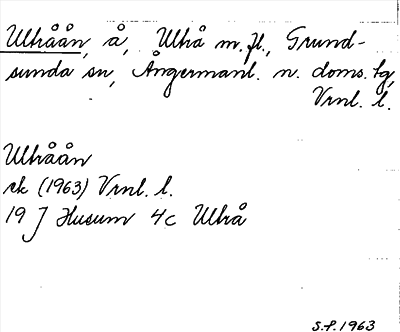 Ulhåån, å, Ulhå m.fl., Grund-
sunda sn, Ångermanl. n. doms. tg,
Vrnl. l.
Ulhåån
rk (1963) Vrnl. l.
19 J Husum 4c Ulhå
S.F. 1963